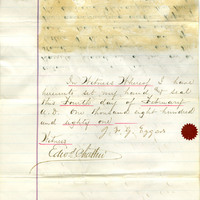 In Witness Whereof I have
hereunto set my hand & seal
this Fourth day of February
A.D. One thousand eight hundred
and eighty one
J. F. G.
Witness